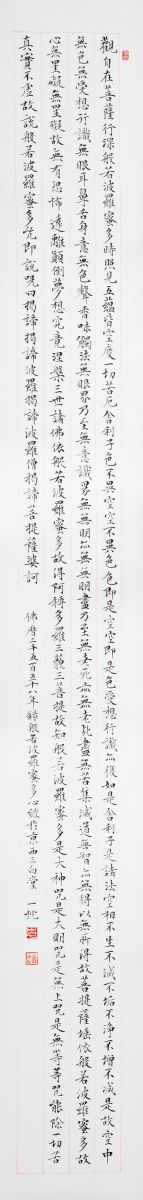 觀自在菩薩行深般若波羅蜜多時照見五蘊皆空度一切苦厄舍利子色不異空空不異色色即是空空即是色受想行識亦復如是舍利子是諸法空相不生不滅不垢不淨不增不減是故空中
無色無受想行識無眼耳鼻舌身意無色聲香味觸法無眼界乃至無意識界無無明亦無無明盡乃至無老死亦無老死盡無苦集滅道無智亦無得以無所得故菩提薩埵依般若波羅蜜多故
心無罣礙無罣礙故無有恐怖遠離顛倒夢想究竟涅槃三世諸佛依般若波羅蜜多故得阿耨多羅三藐三菩提故知般若波羅蜜多是大神咒是大明咒是無上咒是無等等咒能除一切苦
真實不虛故說般若波羅蜜多咒即說咒曰揭諦揭諦波羅揭諦波羅僧揭諦菩提薩婆訶
佛曆二千五百五十八年錄般若波羅蜜多心經於京西三白堂 一忱